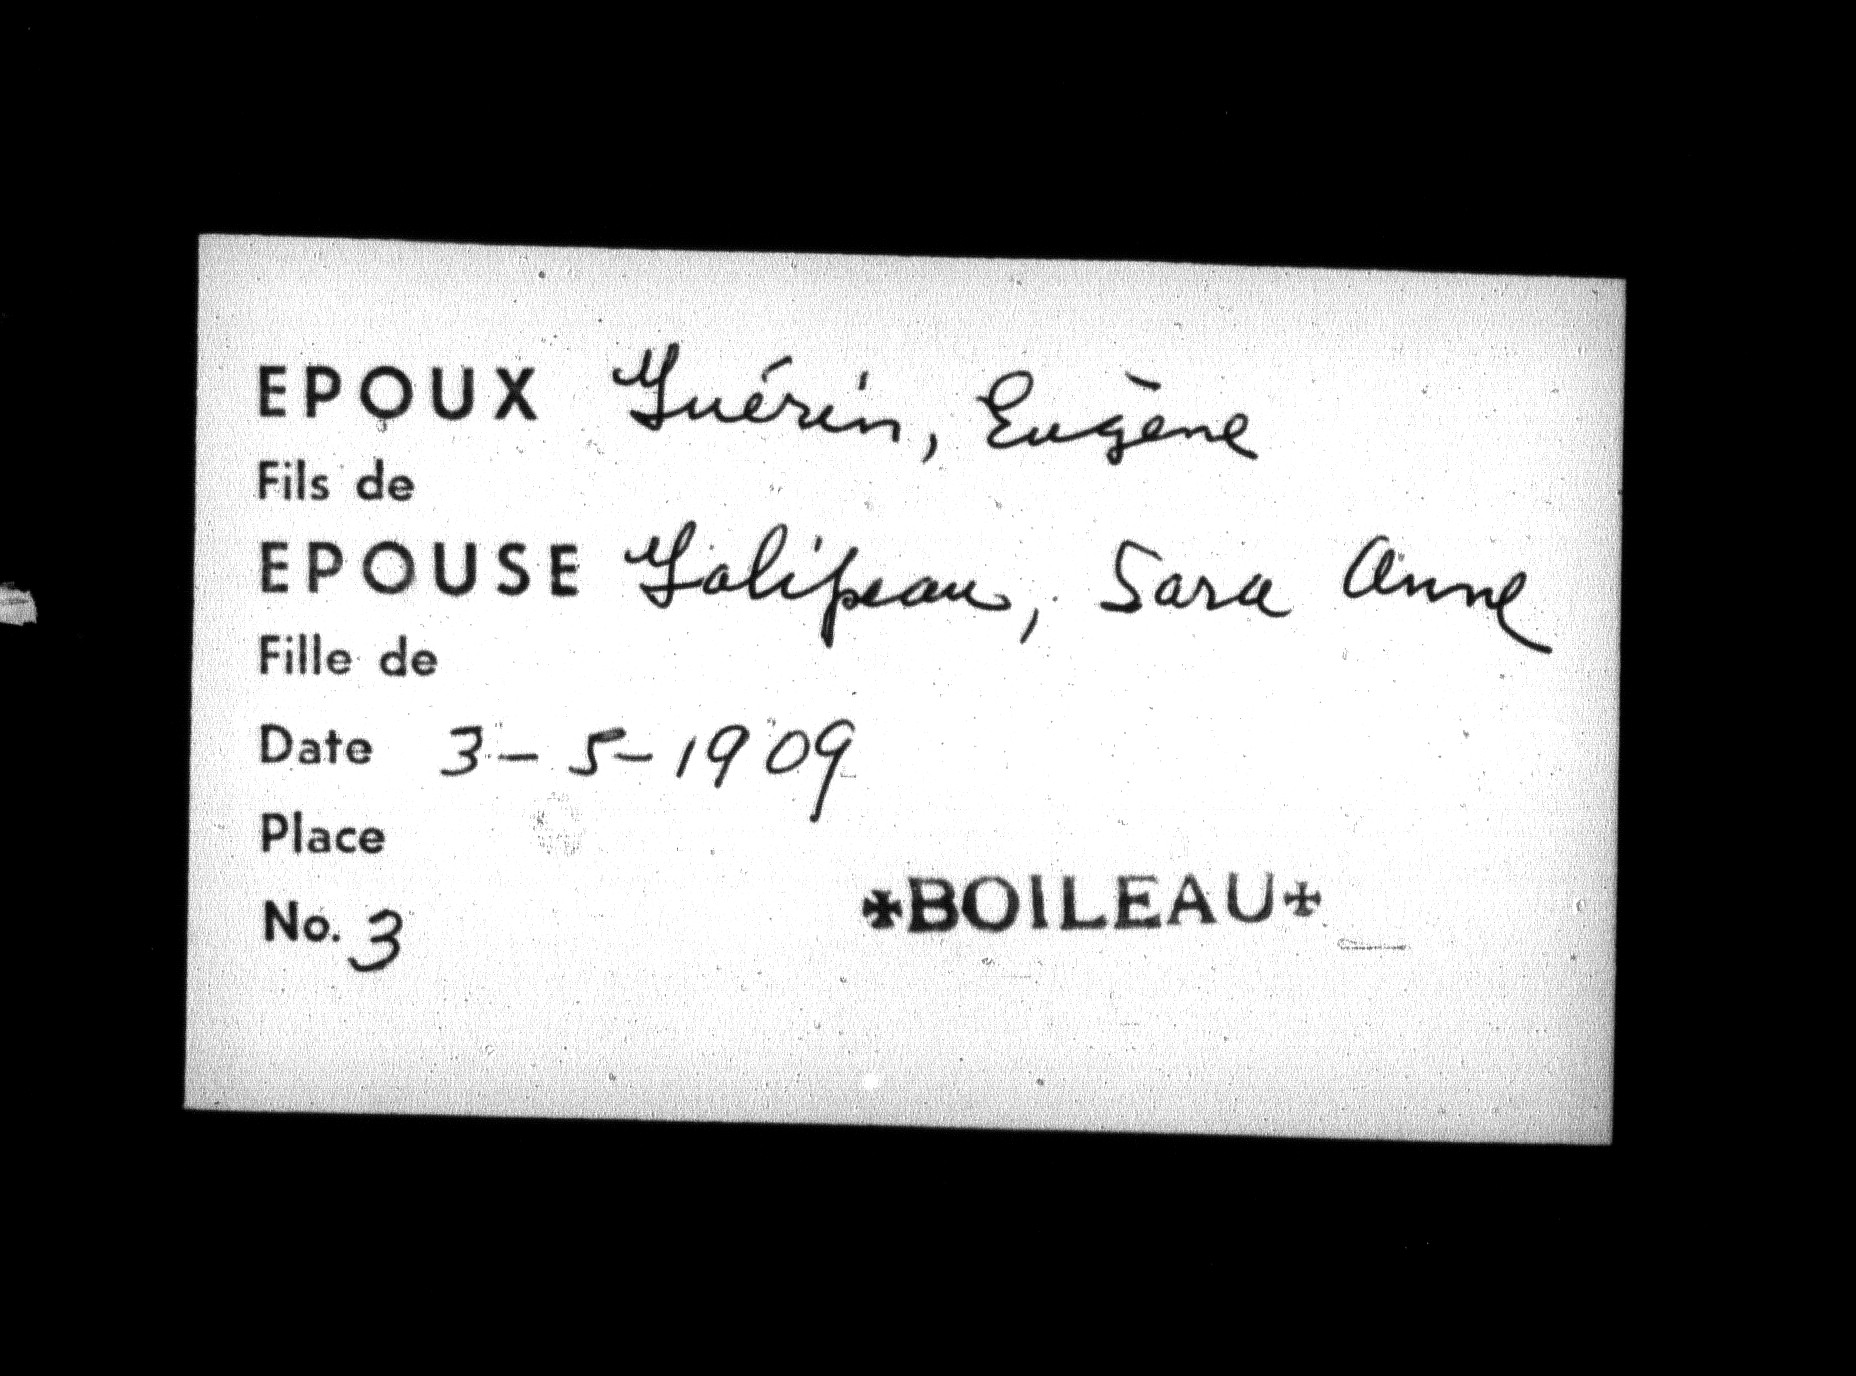 EPOUX Guérin, Eugène
Fils de
EPOUSE Galipeau, Sara Anne
Fille de
Date 3-5-1909
Place
✠BOILEAU✠
No. 3